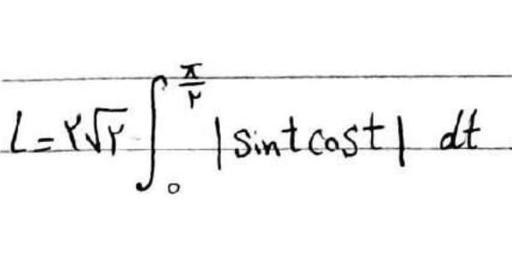 L = ۲√۲ ∫₀^(π/۲) |sint cost| dt